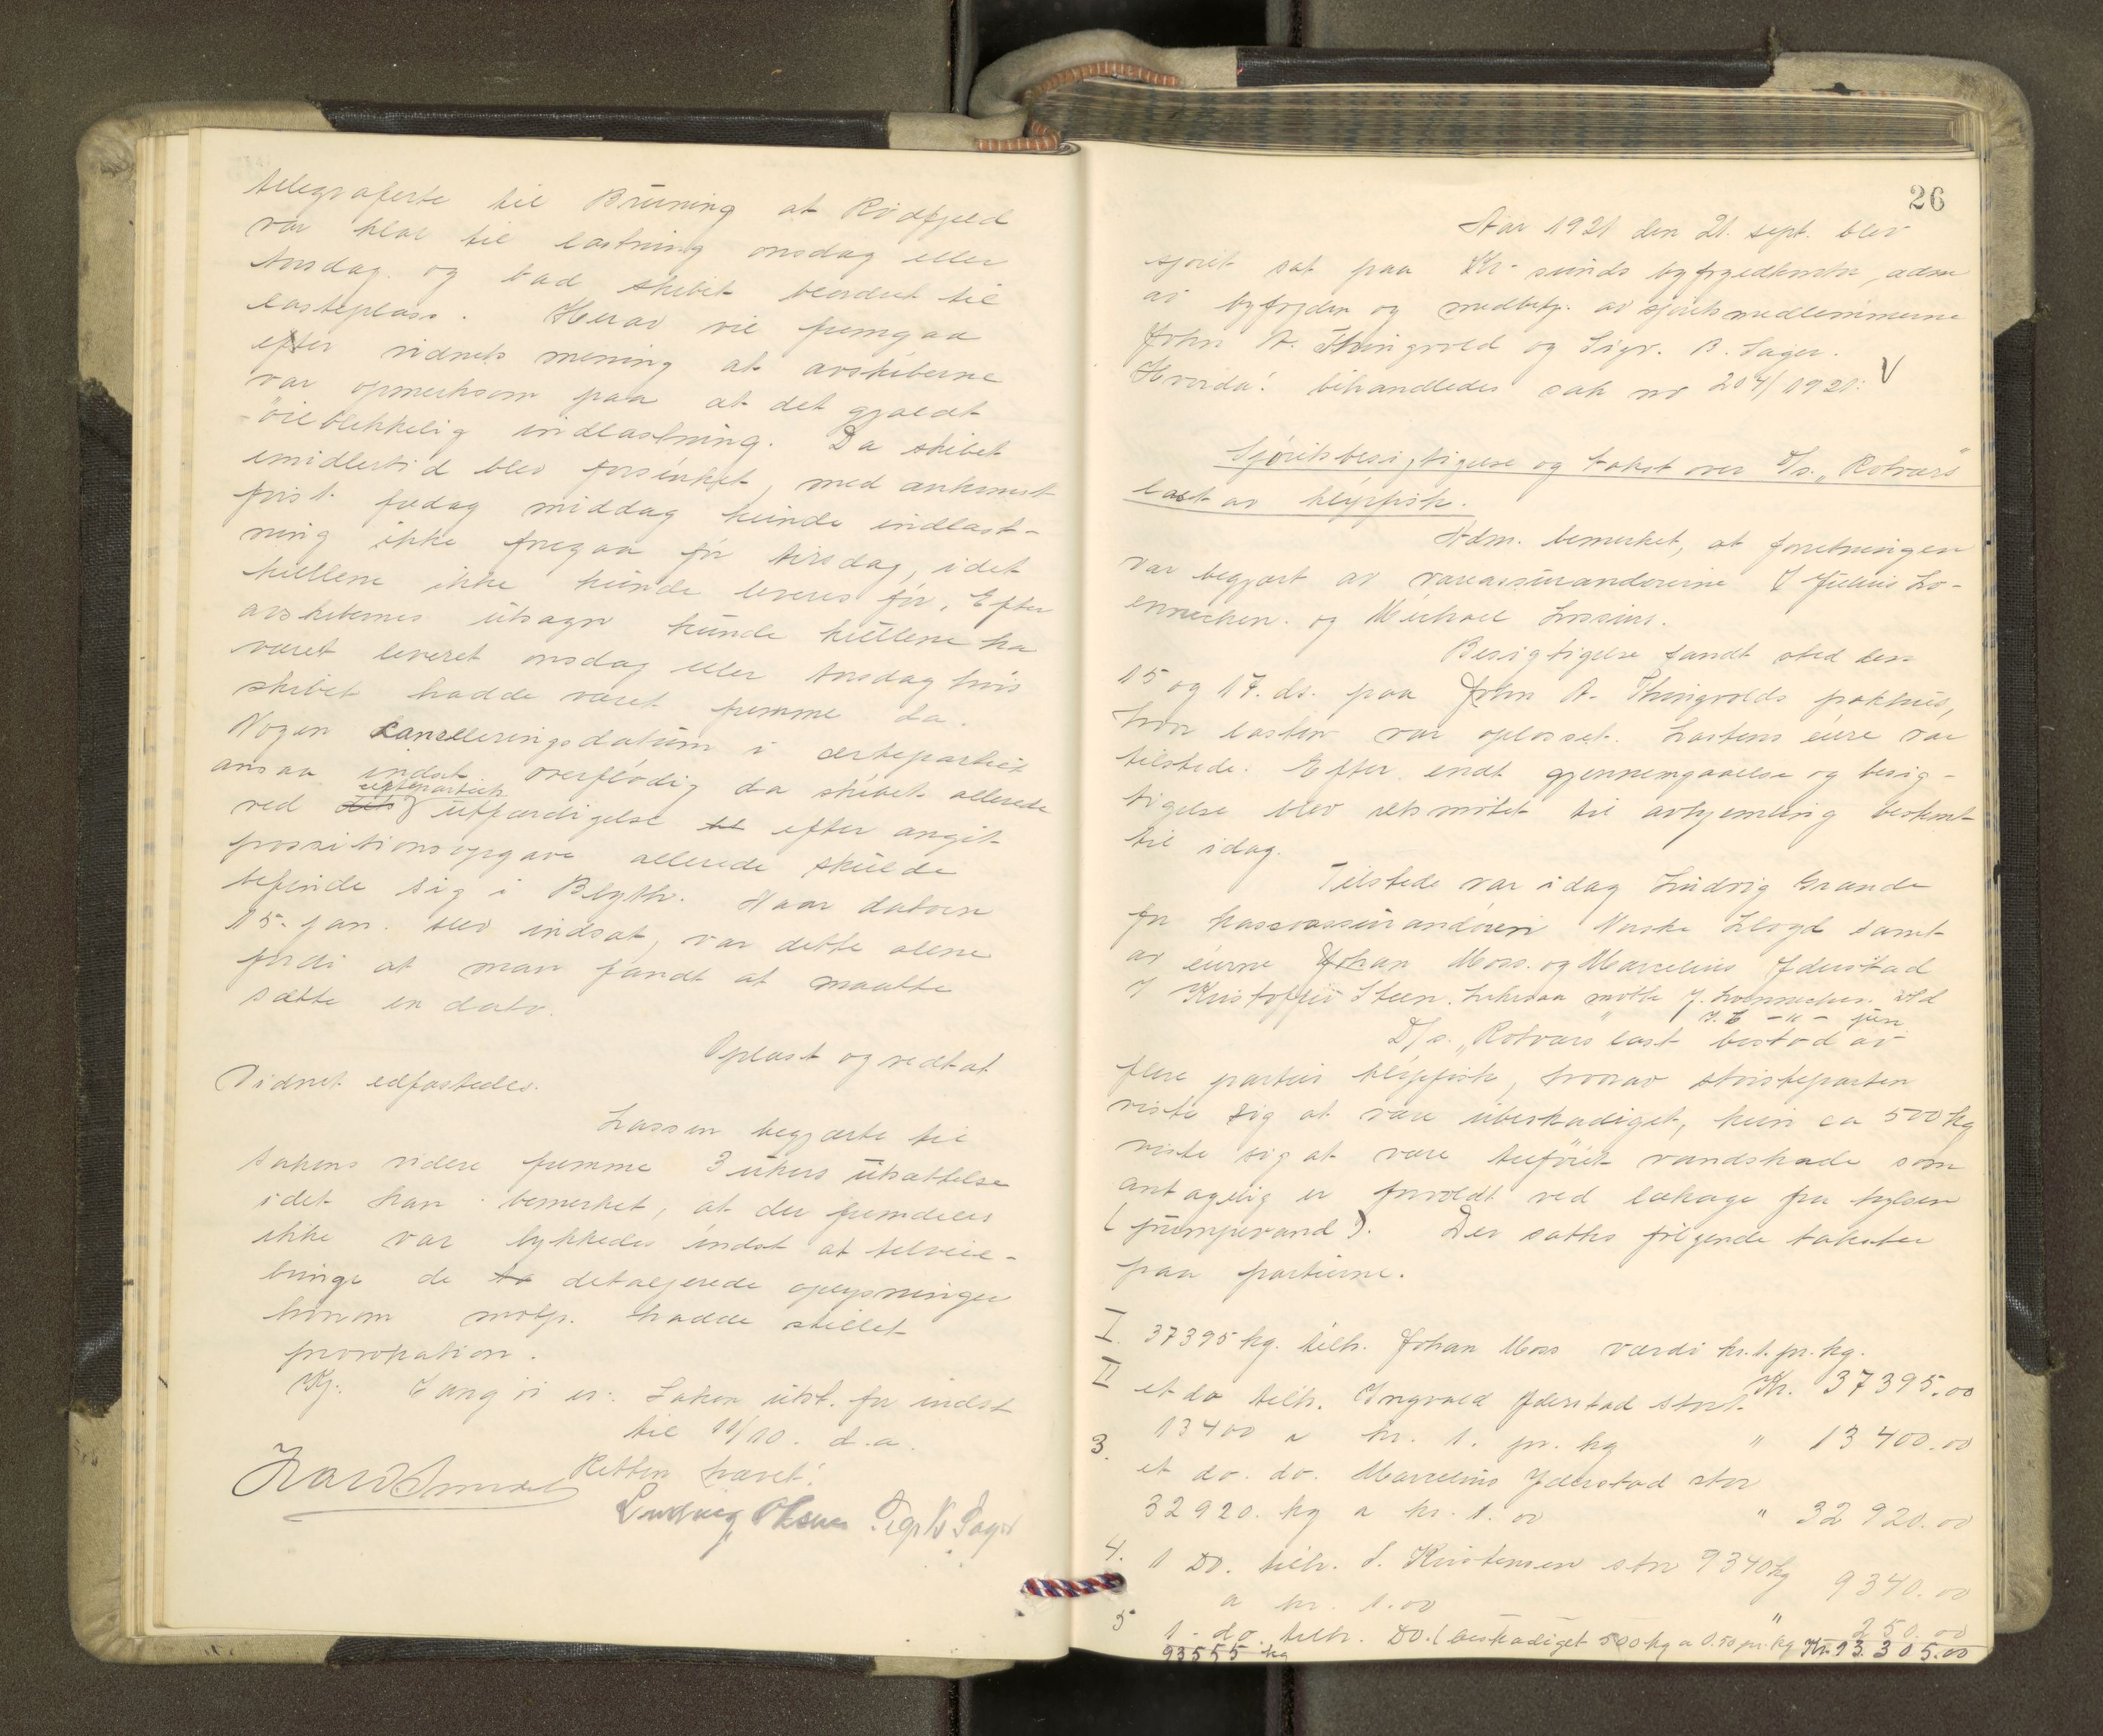 telegraferte til Brüning at Rödfjeld
var klar til lastning onsdag eller
torsdag og bad skibet beordret til
lasteplass. Herav vil fremgaa
efter vidnets mening at avskiberne
var opmerksom paa at det gjaldt
öieblikkelig indlastning. Da skibet
imidlertid blev forsinket, med ankomst
först fredag middag kunde indlast-
ning ikke foregaa för tirsdag, idet
kullene ikke kunde leveres för. Efter
avskibernes utsagn kunde kullene ha
været leveret onsdag eller torsdag hvis
skibet hadde været fremme da.
Nogen cancelleringsdatum i certepartiet
ansaa indst. overflödig da skibet allerede
certepartiets
ved dets utfærdigelse efter angit
possitionsopgave allerede skulde
befinde sig i Blyth. Naar datoen
15. jan. blev indsat, var dette alene
fordi at man fandt at maatte
sætte en dato.
Oplæst og vedtat
Vidnet edfæstedes.
Lassen begjærte til
sakens videre fremme 3 ukers utsættelse
idet han bemerket, at der fremdeles
ikke var lykkedes indst at tilveie-
bringe de detaljerede oplysninger
hvorom motp. hadde stillet
provokation.
Kj: Eang is er: Saken uts. for indst
til 11/10. d.a.
Retten hævet!
Ludvig Olsen Sigv B Sager
26
Aar 1921 den 21. sept. blev
sjöret sat paa Kr-sunds byfogedkontor, adm
av byfogden og medbetj. av sjöretsmedlemmerne
John A. Thingvold og Sigv. B. Sager.
Hvorda! behandledes sak no 204/1921: V
Sjöretsbesigtigelse og takst over D/s. "Rotvær's"
last av klipfisk.
Adm. bemerket, at forretningen
var begjært av vareassurandörerne J Julius Lo-
ennechen. og Michael Lossius.
Besigtigelse fandt sted den
15 og 17. ds. paa John A. Thingvolds pakhus,
hvor lasten var oplosset. Lastens eiere var
tilstede. Efter endt gjennemgaaelse og besig-
tigelse blev retsmötet til avhjemling bestemt
til idag.
Tilstede var idag Ludvig Grande
for kascoassurandören Norske Lloyd samt
av eierne Johan Moss. og Marcelius Yderstad
D/s. "Rotværs" last bestod av
flere partier klipfisk, hvorav störsteparten
viste sig at være ubeskadiget, kun ca 500 kg
viste sig at være tilföiet vandskade som
antagelig er forvoldt ved lækage fra hylsen
(pumpevand). Der sattes fölgende takster
paa partierne.
I. 37395 kg. tilh. Johan Moss værdi kr. 1. pr. kg.
Kr. 37395.00
II et do tilh. Ingvald Yderstad stort
13400 a kr. 1. pr. kg " 13400.00
3. et do. do. Marcelius Yderstad stor
32920. kg a kr. 1.00 " 32920.00
4. 1 Do. tilh. S. Kristensen stor 9340 kg
a kr. 1.00 9340.00
5 1 - do. tilh. Do. (beskadiget 500 kg a 0.50 pr. kg " 250.00
93555 kg Kr. 93.305.00